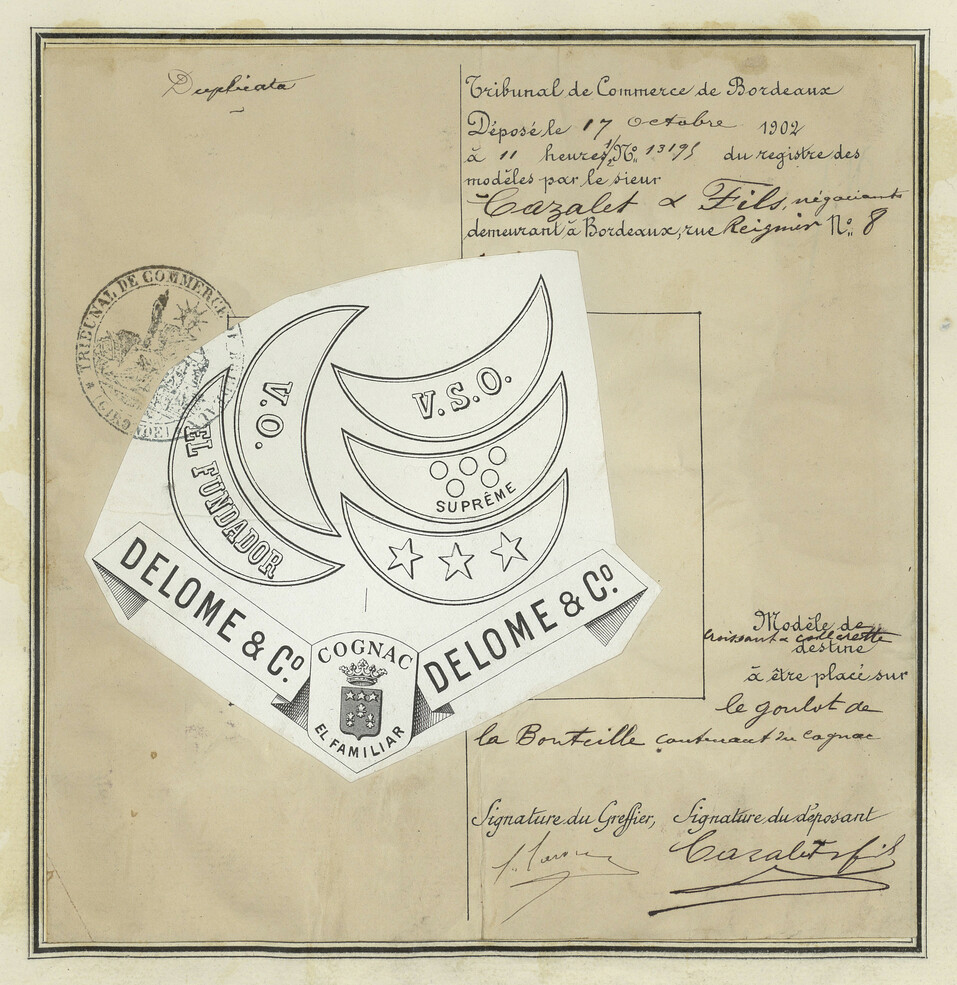 Duplicata
Tribunal de Commerce de Bordeaux
Déposé le 17 octobre 1902
à 11 heures 1/2 No. 13195 du registre des
modèles par le sieur
Cazalet & Fils, négociants
demeurant à Bordeaux, rue Reignier No. 8
TRIBUNAL DE COMMERCE
V.O.
EL FUNDADOR
V.S.O.
SUPRÊME
DELOME & Co.
DELOME & Co.
COGNAC
EL FAMILIAR
Modèle de
Croissant & collerette
destiné
à être placé sur
le goulot de
la Bouteille contenant du cognac
Signature du Greffier, Signature du déposant
Cazalet & fils